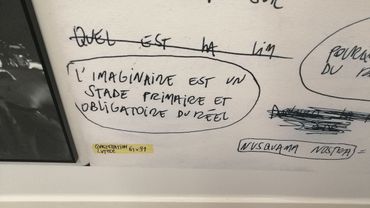 SUR
QUEL EST LA LIM
L'IMAGINAIRE EST UN
STADE PRIMAIRE ET
OBLIGATOIRE DU RÉEL
POURQU
DU
NUSQUAMA NOSTRA =